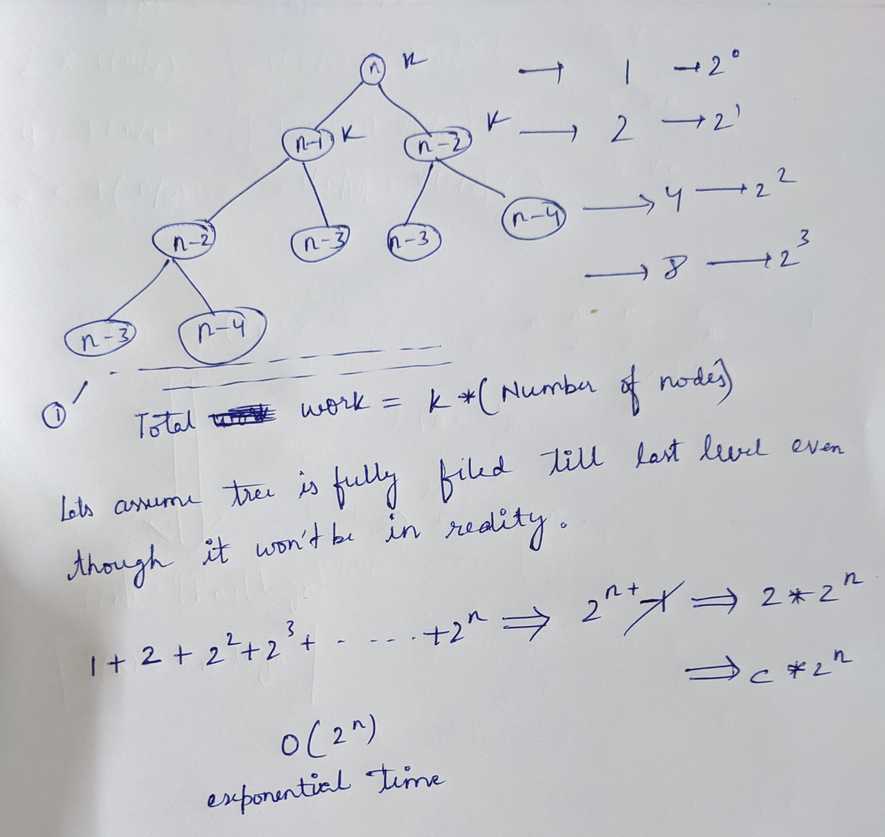 n k → 1 → 2⁰
n-1 k n-2 k → 2 → 2¹
n-2 n-3 n-3 n-4 → 4 → 2²
→ 8 → 2³
n-3 n-4
1
Total work = k *(Number of nodes)
Lets assume tree is fully filed till last level even
though it won't be in reality.
1 + 2 + 2² + 2³ + - - - - . + 2ⁿ ⇒ 2ⁿ⁺ ⇒ 2 * 2ⁿ
⇒ c * 2ⁿ
O(2ⁿ)
exponential time